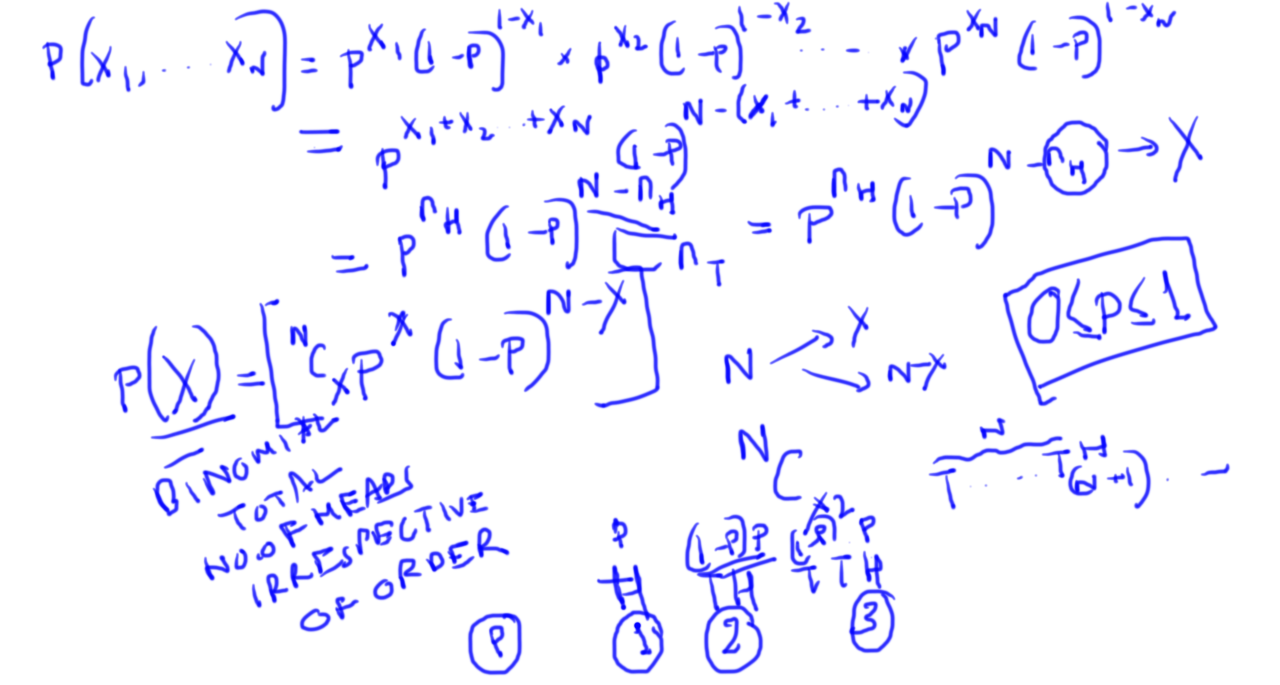 P(X₁, ... X_N) = p^X₁ (1-P)^(1-X₁) × p^X₂ (1-P)^(1-X₂) ... - × P^X_N (1-P)^(1-X_N)
= P^(X₁+X₂ ..+X_N) (1-P)^(N-(X₁+....+X_N))
= P^n_H (1-P)^(N-n_H) n_T = P^n_H (1-P)^(N-n_H) → X
P(X) = [ᴺC_X P^X (1-P)^(N-X)]
N → X
→ N-X
0≤P≤1
BINOMIAL
TOTAL
NO OF HEADS
IRRESPECTIVE
OF ORDER
ᴺC
N
T ..... T H (N+1) . -
P (1-P)P (1-P)^X2 P
H TH TTH
P 1 2 3